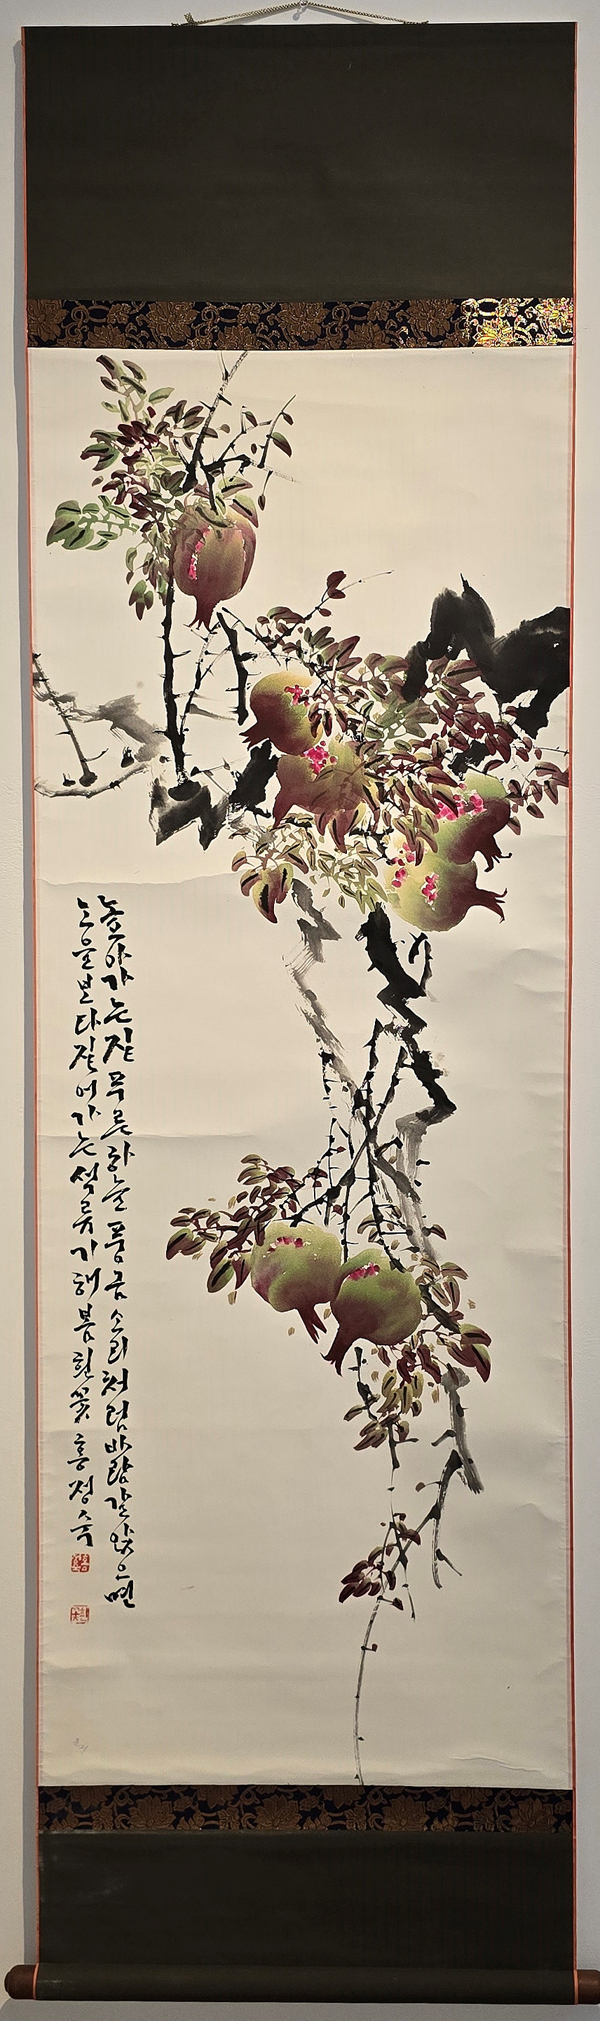 높아가는짙푸른하늘풍금소리처럼바람갈앉으면
노을보다짙어가는석류 가해봄 흰꽃 홍정숙